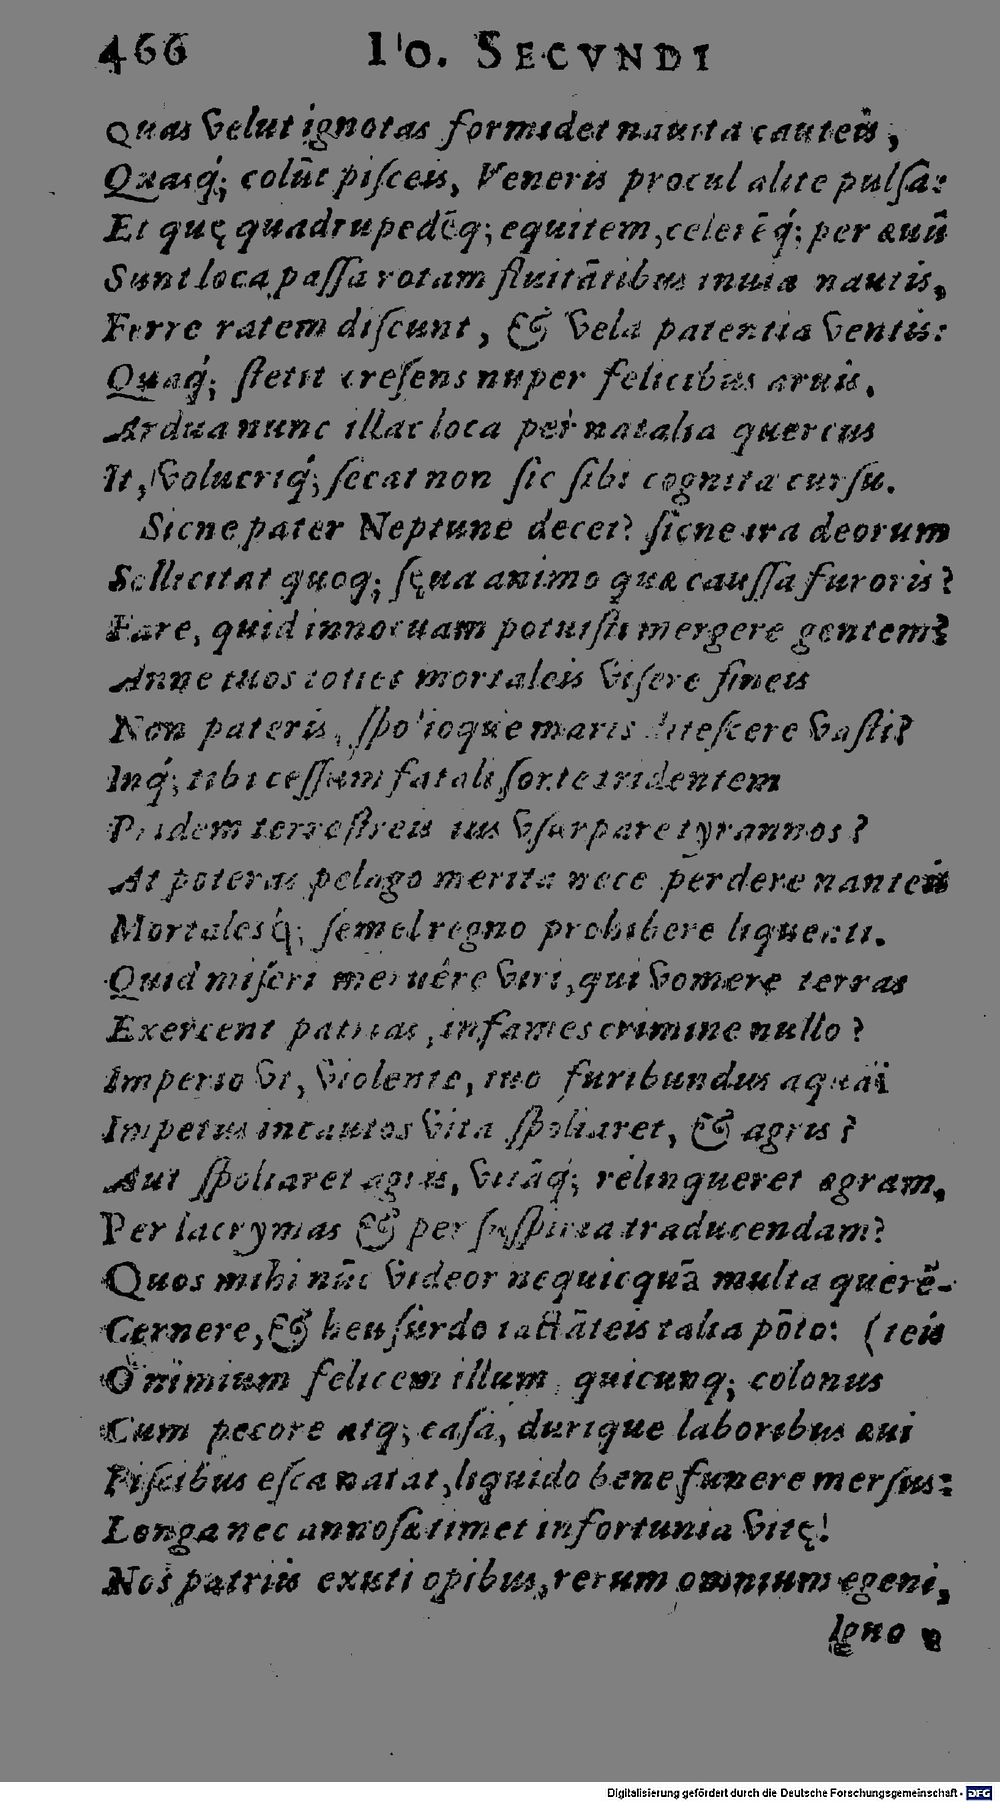 466 Io. SECVNDI
Quas velut ignotas formidet nauita cauteis,
Quasq́; colūt pisceis, Veneris procul alite pulsa:
Et quę quadrupedēq; equitem, celerēq́; per æuū
Sunt loca passa rotam fluitātibus inuia nautis,
Ferre ratem discunt, & vela patentia ventis:
Quaq́; stetit cresens nuper felicibus aruis,
Ardua nunc illac loca per natalia quercus
It, volucriq́; secat non sic sibi cognita cursu.
Sicne pater Neptune decet? sicne ira deorum
Sollicitat quoq; sęua animo quæ caussa furoris?
Fare, quid innocuam potuisti mergere gentem?
Anne tuos toties mortaleis visere fineis
Non pateris, spolioque maris ditescere vasti?
Inq́; tibi cessum fatali sorte tridentem
Pridem terrestreis ius vsurpare tyrannos?
At poteras pelago merita nece perdere nanteis
Mortalesq́; semel regno prohibere liquenti.
Quid miseri meruêre viri, qui vomere terras
Exercent patrias, infames crimine nullo?
Imperio vt, violente, tuo furibundus aquaï
Impetus incautos vita spoliaret, & agris?
Aut spoliaret agris, vitāq́; relinqueret ægram,
Per lacrymas & per suspiria traducendam?
Quos mihi nūc videor nequicquā multa querē-
Cernere, & heu surdo iactāteis talia pōto: (teis
O nimium felicem illum, quicunq; colonus
Cum pecore atq; casa, durique laboribus æui
Piscibus esca natat, liquido bene funere mersus:
Longa nec annosæ timet infortunia vitę!
Nos patriis exuti opibus, rerum omnium egeni,
Igno
Digitalisierung gefördert durch die Deutsche Forschungsgemeinschaft - DFG